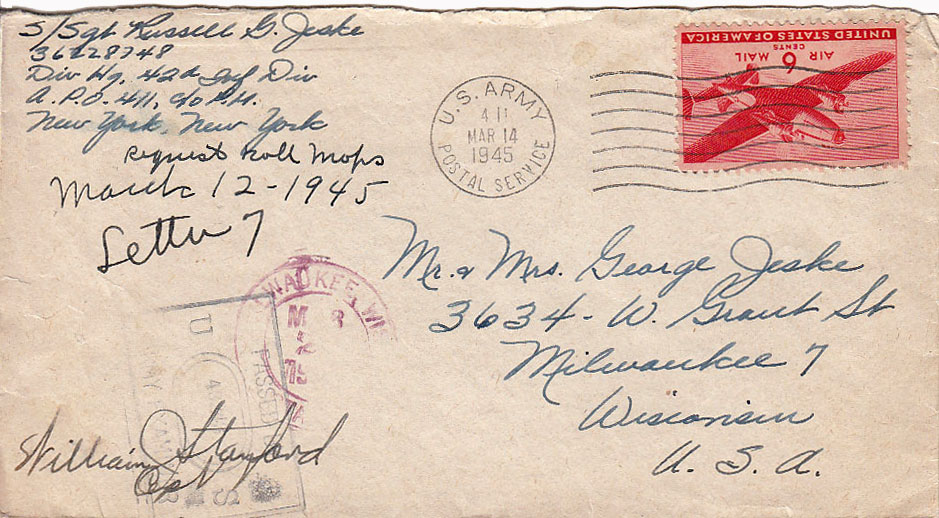 S/Sgt Russell G. Jeske
36228748
Div Hq, 42d Inf Div
A.P.O. 411, c/o P.M.
New York, New York
request Roll Mops
March 12-1945
Letter 7
U.S. ARMY
4 11
MAR 14
1945
POSTAL SERVICE
UNITED STATES OF AMERICA
AIR 6 MAIL
CENTS
Mr. & Mrs. George Jeske
3634 - W. Grant St
Milwaukee 7
Wisconsin
U. S. A.
WAUKEE, WI
PASSED
William Stanford